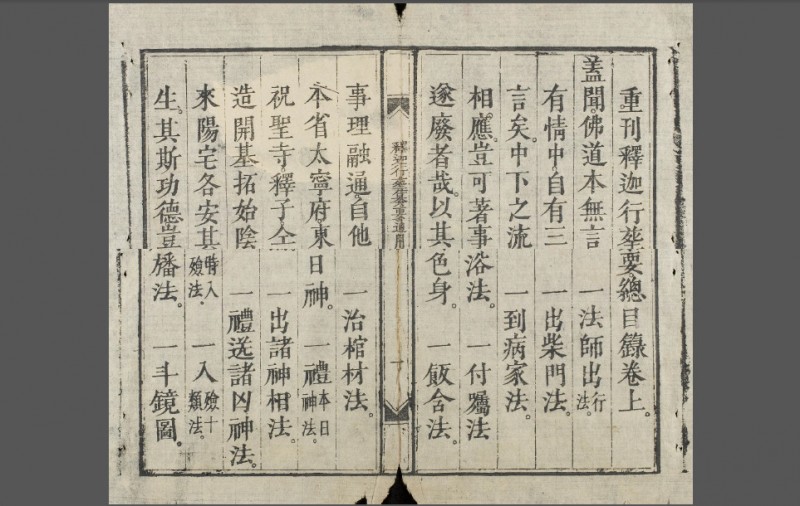 重刊釋迦行塟要總目錄卷上。
盖聞佛道本無言 一法師出行法。
有情中自有三 一出柴門法。
言矣。中下之流 一到病家法。
相應。豈可著事浴法。 一付囑法
遂廢者哉。以其色身。 一飯含法。
釋迦行 要
事理融通。自他 一治棺材法。
本省太寧府東日神。 一禮本日神法。
祝聖寺釋子仝 一出諸神相法。
造開基拓始陰 一禮送諸凶神法。
來陽宅各安其時入殮法。 一入殮十類法。
生。其斯功德豈旛法。 一斗鏡圖。